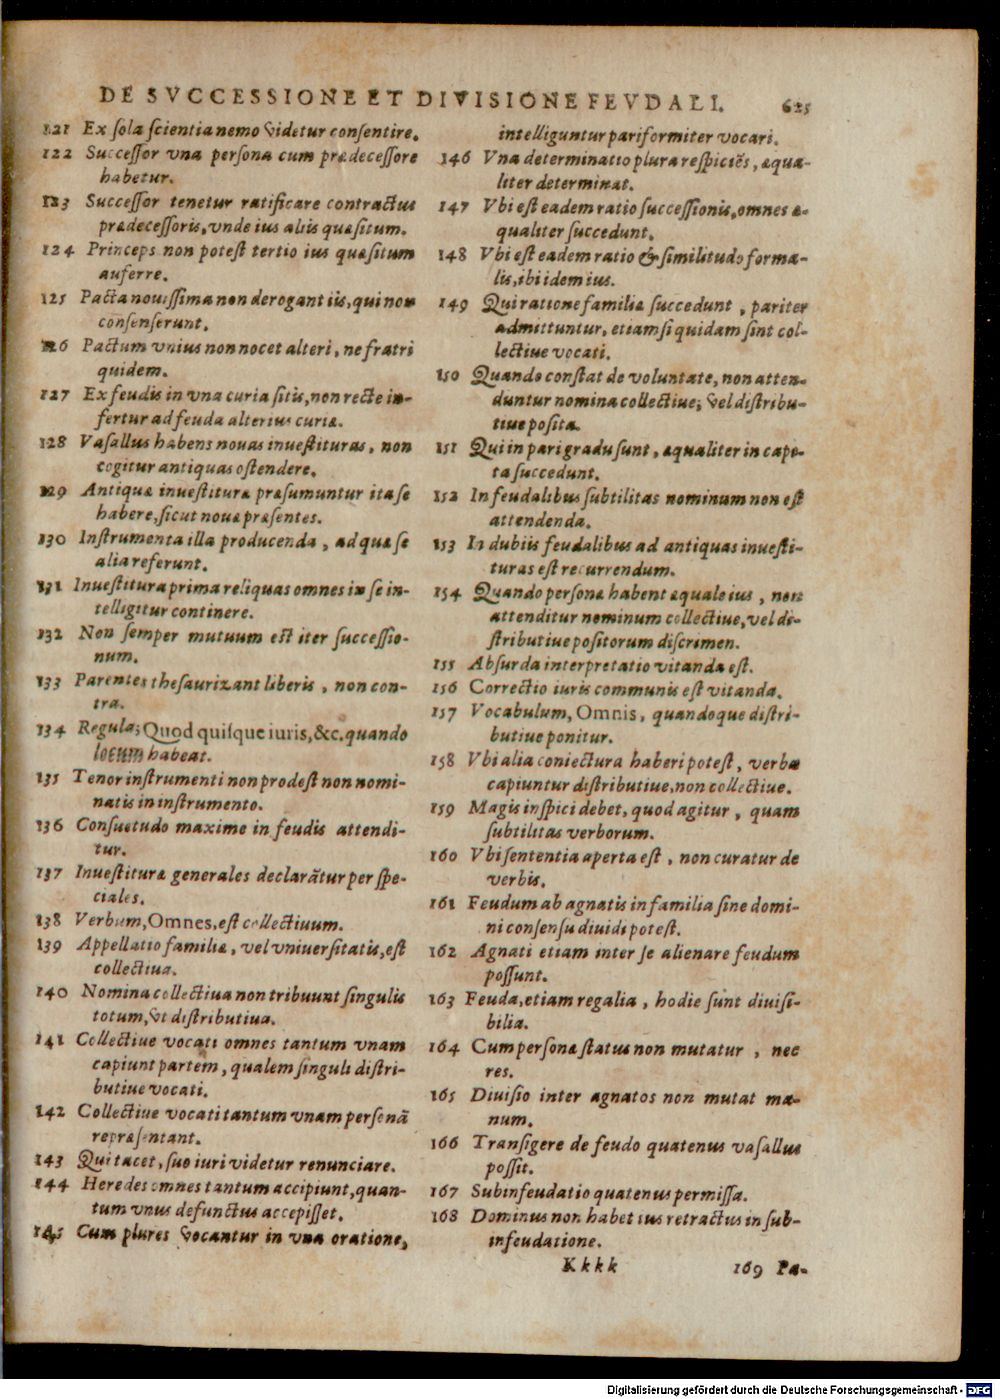 DE SVCCESSIONE ET DIVISIONE FEVDALI. 625
121 Ex sola scientia nemo videtur consentire.
122 Successor vna persona cum prædecessore
habetur.
123 Successor tenetur ratificare contractus
prædecessoris, vnde ius aliis quæsitum.
124 Princeps non potest tertio ius quæsitum
auferre.
125 Pacta nouissima non derogant iis, qui non
consenserunt.
126 Pactum vnius non nocet alteri, ne fratri
quidem.
127 Ex feudis in vna curia sitis, non recte in-
fertur ad feuda alterius curiæ.
128 Vasallus habens nouas inuestituras, non
cogitur antiquas ostendere.
129 Antiquæ inuestituræ præsumuntur ita se
habere, sicut nouæ præsentes.
130 Instrumenta illa producenda, ad quæ se
alia referunt.
131 Inuestitura prima reliquas omnes in se in-
telligitur continere.
132 Non semper mutuum est iter successio-
num.
133 Parentes thesaurizant liberis, non con-
tra.
134 Regula; Quod quisque iuris, &c. quando
locum habeat.
135 Tenor instrumenti non prodest non nomi-
natis in instrumento.
136 Consuetudo maxime in feudis attendi-
tur.
137 Inuestituræ generales declarātur per spe-
ciales.
138 Verbum, Omnes, est collectiuum.
139 Appellatio familiæ, vel vniuersitatis, est
collectiua.
140 Nomina collectiua non tribuunt singulis
totum, vt distributiua.
141 Collectiue vocati omnes tantum vnam
capiunt partem, qualem singuli distri-
butiue vocati.
142 Collectiue vocati tantum vnam personā
repræsentant.
143 Qui tacet, suo iuri videtur renunciare.
144 Heredes omnes tantum accipiunt, quan-
tum vnus defunctus accepisset.
145 Cum plures vocantur in vna oratione,
intelliguntur pariformiter vocari.
146 Vna determinatio plura respiciēs, æqua-
liter determinat.
147 Vbi est eadem ratio successionis, omnes æ-
qualiter succedunt.
148 Vbi est eadem ratio & similitudo forma-
lis, ibi idem ius.
149 Qui ratione familiæ succedunt, pariter
admittuntur, etiamsi quidam sint col-
lectiue vocati.
150 Quando constat de voluntate, non atten-
duntur nomina collectiue, vel distribu-
tiue posita.
151 Qui in pari gradu sunt, æqualiter in capi-
ta succedunt.
152 In feudalibus subtilitas nominum non est
attendenda.
153 In dubiis feudalibus ad antiquas inuesti-
turas est recurrendum.
154 Quando personæ habent æquale ius, non
attenditur nominum collectiue, vel di-
stributiue positorum discrimen.
155 Absurda interpretatio vitanda est.
156 Correctio iuris communis est vitanda.
157 Vocabulum, Omnis, quandoque distri-
butiue ponitur.
158 Vbi alia coniectura haberi potest, verba
capiuntur distributiue, non collectiue.
159 Magis inspici debet, quod agitur, quam
subtilitas verborum.
160 Vbi sententia aperta est, non curatur de
verbis.
161 Feudum ab agnatis in familia sine domi-
ni consensu diuidi potest.
162 Agnati etiam inter se alienare feudum
possunt.
163 Feuda, etiam regalia, hodie sunt diuisi-
bilia.
164 Cum personæ status non mutatur, nec
res.
165 Diuisio inter agnatos non mutat ma-
num.
166 Transigere de feudo quatenus vasallus
possit.
167 Subinfeudatio quatenus permissa.
168 Dominus non habet ius retractus in sub-
infeudatione.
Kkkk 169 Pa-
Digitalisierung gefördert durch die Deutsche Forschungsgemeinschaft - DFG